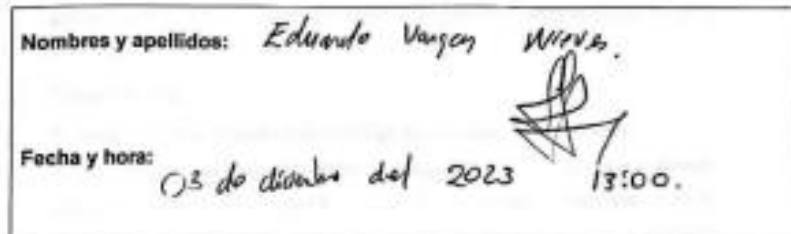 Nombres y apellidos: Eduardo Vargas Nieves.
Fecha y hora: 03 de diciembre del 2023 13:00.